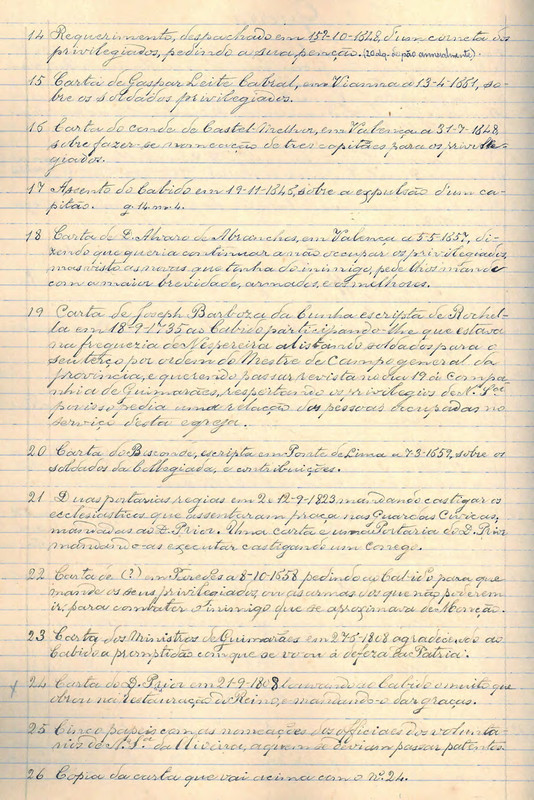 14 Requerimento, despachado em 15?-10-1648, d'um corneta dos
privilegiados, pedindo a sua penção. (20 alq. de pão annualmente).
15 Carta de Gaspar Leite Cabral, em Vianna a 13-4-1651, so-
bre os soldados privilegiados.
16 Carta do conde de Castel-Melhor, em Valença a 31-7-1648
sobre fazer-se nomeação de tres capitães para os privile-
giados.
17 Assento do Cabido em 19-11-1643, sobre a expulsão d'um ca-
pitão. g. 14. m. 4.
18 Carta de D. Alvaro de Abranches, em Valença a 5-5-1657, di-
zendo que queria continuar a não occupar os privilegiados,
mas visto as novas que tenha do inimigo, pede lhos mande
com a maior brevidade, armados, e os melhores.
19 Carta de Joseph Barboza da Cunha escripta de
em 18-9-1735 ao Cabido participando-lhe que estava
na freguezia de Nespereira alistando soldados para o
seu terço por ordem do Mestre de Campo general da
provincia, e querendo passar revista no dia 19 á Compa-
nhia de Guimarães, respeitando os privilegios de N. Srª
por isso pedia uma relação das pessoas occupadas no
serviço desta egreja.
20 Carta do Bisconde, escripta em Ponte de Lima a 7-3-1659, sobre os
soldados da Collegiada, e contribuições.
21 Duas portarias regias em 2 e 12-9-1823 mandando castigar os
ecclesiasticos que assentaram praça nas Guardas Civicas,
mandadas ao D. Prior. Uma carta e uma Portaria do D. Prior
mandando-as executar castigando um conego.
22 Carta de (?) em Paredes a 8-10-1658 pedindo ao Cabido para que
mande os seus privilegiados, ou as armas dos que não poderem
ir, para combater o inimigo que se aproximava de Monção.
23 Carta dos Ministros de Guimarães em 27-5-1808 agradecendo ao
Cabido a promptidão com que se voou á defeza da Patria.
24 Carta do D. Prior em 21-9-1808 louvando ao Cabido o muito que
obrou na restauração do Reino, e mandando-o dar graças.
25 Cinco papeis com as nomeações dos officiaes dos volunta-
rios de N. Srª da Oliveira, a quem se deviam passar patentes.
26 Copia da carta que vai acima com o nº 24.